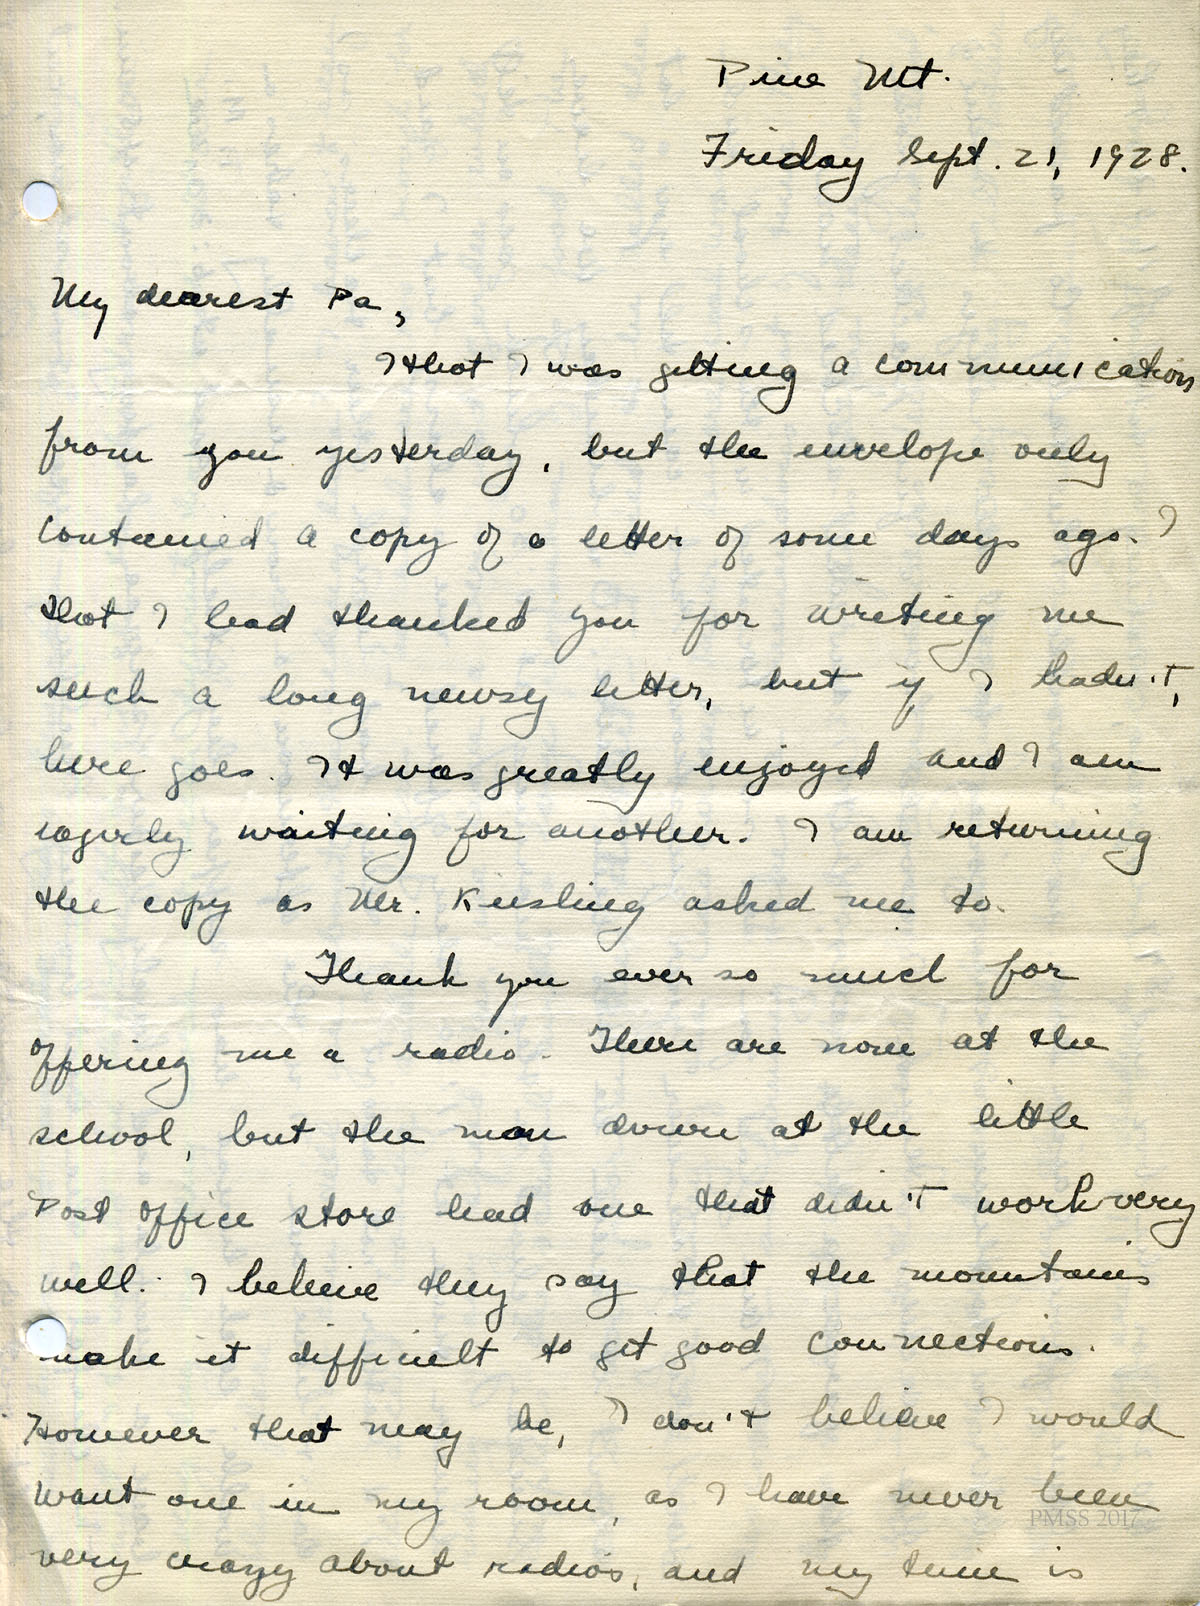 Pine Mt.
Friday Sept. 21, 1928.
My dearest Pa,
I thot I was getting a communication
from you yesterday, but the envelope only
contained a copy of a letter of some days ago. I
thot I had thanked you for writing me
such a long newsy letter, but if I hadn't,
here goes. It was greatly enjoyed and I am
eagerly waiting for another. I am returning
the copy as Mr. Kiesling asked me to.
Thank you ever so much for
offering me a radio. There are none at the
school, but the man down at the little
Post office store had one that didn't work very
well. I believe they say that the mountains
make it difficult to get good connections.
However that may be, I don't believe I would
want one in my room, as I have never been
very crazy about radios, and my time is
PMSS 2017